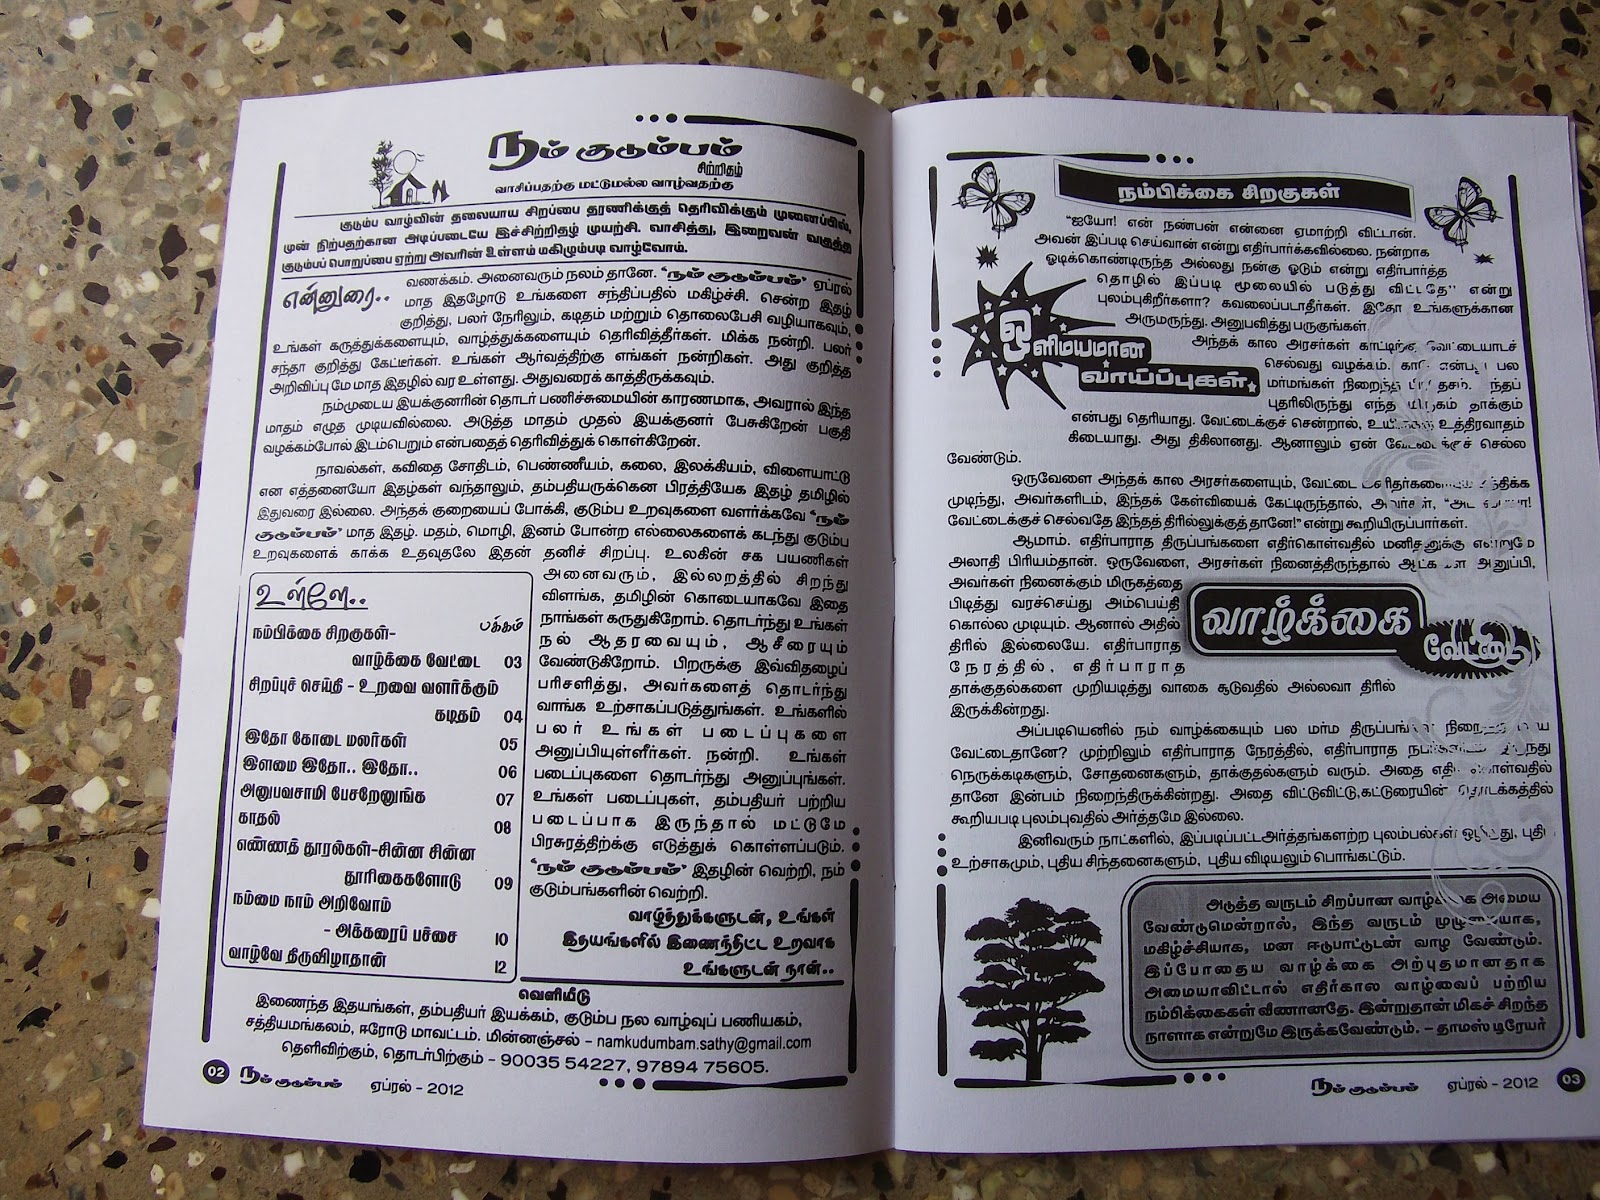 நம் குடும்பம்
சிற்றிதழ்
வாசிப்பதற்கு மட்டுமல்ல வாழ்வதற்கு
குடும்ப வாழ்வின் தலையாய சிறப்பை தரணிக்குத் தெரிவிக்கும் முனைப்பில்,
முன் நிற்பதற்கான அடிப்படையே இச்சிற்றிதழ் முயற்சி. வாசித்து, இறைவன் வகுத்த
குடும்பப் பொறுப்பை ஏற்று அவரின் உள்ளம் மகிழும்படி வாழ்வோம்.
என்னுரை..
வணக்கம். அனைவரும் நலம் தானே. 'நம் குடும்பம்' ஏப்ரல்
மாத இதழோடு உங்களை சந்திப்பதில் மகிழ்ச்சி. சென்ற இதழ்
குறித்து, பலர் நேரிலும், கடிதம் மற்றும் தொலைபேசி வழியாகவும்,
உங்கள் கருத்துக்களையும், வாழ்த்துக்களையும் தெரிவித்தீர்கள். மிக்க நன்றி. பலர்
சந்தா குறித்து கேட்டீர்கள். உங்கள் ஆர்வத்திற்கு எங்கள் நன்றிகள். அது குறித்த
அறிவிப்பு மே மாத இதழில் வர உள்ளது. அதுவரைக் காத்திருக்கவும்.
நம்முடைய இயக்குனரின் தொடர் பணிச்சுமையின் காரணமாக, அவரால் இந்த
மாதம் எழுத முடியவில்லை. அடுத்த மாதம் முதல் இயக்குனர் பேசுகிறேன் பகுதி
வழக்கம்போல் இடம்பெறும் என்பதைத் தெரிவித்துக் கொள்கிறேன்.
நாவல்கள், கவிதை சோதிடம், பெண்ணீயம், கலை, இலக்கியம், விளையாட்டு
என எத்தனையோ இதழ்கள் வந்தாலும், தம்பதியருக்கென பிரத்தியேக இதழ் தமிழில்
இதுவரை இல்லை. அந்தக் குறையைப் போக்கி, குடும்ப உறவுகளை வளர்க்கவே 'நம்
குடும்பம்' மாத இதழ். மதம், மொழி, இனம் போன்ற எல்லைகளைக் கடந்து குடும்ப
உறவுகளைக் காக்க உதவுதலே இதன் தனிச் சிறப்பு. உலகின் சக பயணிகள்
அனைவரும், இல்லறத்தில் சிறந்து
விளங்க, தமிழின் கொடையாகவே இதை
நாங்கள் கருதுகிறோம். தொடர்ந்து உங்கள்
நல் ஆதரவையும், ஆசீரையும்
வேண்டுகிறோம். பிறருக்கு இவ்விதழைப்
பரிசளித்து, அவர்களைத் தொடர்ந்து
வாங்க உற்சாகப்படுத்துங்கள். உங்களில்
பலர் உங்கள் படைப்புகளை
அனுப்பியுள்ளீர்கள். நன்றி. உங்கள்
படைப்புகளை தொடர்ந்து அனுப்புங்கள்.
உங்கள் படைப்புகள், தம்பதியர் பற்றிய
படைப்பாக இருந்தால் மட்டுமே
பிரசுரத்திற்க்கு எடுத்துக் கொள்ளப்படும்.
'நம் குடும்பம்' இதழின் வெற்றி, நம்
குடும்பங்களின் வெற்றி.
வாழ்த்துக்களுடன், உங்கள்
இதயங்களில் இணைந்திட்ட உறவாக
உங்களுடன் நான்..
உள்ளே..
பக்கம்
நம்பிக்கை சிறகுகள்-
வாழ்க்கை வேட்டை 03
சிறப்புச் செய்தி - உறவை வளர்க்கும்
கடிதம் 04
இதோ கோடை மலர்கள் 05
இளமை இதோ.. இதோ.. 06
அனுபவசாமி பேசறேனுங்க 07
காதல் 08
எண்ணத் தூரல்கள்-சின்ன சின்ன
தூரிகைகளோடு 09
நம்மை நாம் அறிவோம்
- அக்கரைப் பச்சை 10
வாழ்வே திருவிழாதான் 12
வெளியீடு
இணைந்த இதயங்கள், தம்பதியர் இயக்கம், குடும்ப நல வாழ்வுப் பணியகம்,
சத்தியமங்கலம், ஈரோடு மாவட்டம். மின்னஞ்சல் – namkudumbam.sathy@gmail.com
தெளிவிற்கும், தொடர்பிற்கும் – 90035 54227, 97894 75605.
02 நம் குடும்பம் ஏப்ரல் – 2012
நம்பிக்கை சிறகுகள்
"ஐயோ! என் நண்பன் என்னை ஏமாற்றி விட்டான்.
அவன் இப்படி செய்வான் என்று எதிர்பார்க்கவில்லை. நன்றாக
ஓடிக்கொண்டிருந்த அல்லது நன்கு ஓடும் என்று எதிர்பார்த்த
தொழில் இப்படி மூலையில் படுத்து விட்டதே" என்று
புலம்புகிறீர்களா? கவலைப்படாதீர்கள். இதோ உங்களுக்கான
அருமருந்து. அனுபவித்து பருகுங்கள்.
ஒளிமயமான
வாய்ப்புகள்
அந்தக் கால அரசர்கள் காட்டிற்கு வேட்டையாடச்
செல்வது வழக்கம். காடு என்பது பல
மர்மங்கள் நிறைந்த
புதரிலிருந்து எந்த மிருகம் தாக்கும்
என்பது தெரியாது. வேட்டைக்குச் சென்றால், உயிருக்கு உத்திரவாதம்
கிடையாது. அது திகிலானது. ஆனாலும் ஏன் வேட்டைக்குச் செல்ல
வேண்டும்.
ஒருவேளை அந்தக் கால அரசர்களையும், வேட்டை மனிதர்களையும் சந்திக்க
முடிந்து, அவர்களிடம், இந்தக் கேள்வியைக் கேட்டிருந்தால், அவர்கள்,
வேட்டைக்குச் செல்வதே இந்தத் திரில்லுக்குத் தானே!" என்று கூறியிருப்பார்கள்.
ஆமாம். எதிர்பாராத திருப்பங்களை எதிர்கொள்வதில் மனிதனுக்கு என்றுமே
அலாதி பிரியம்தான். ஒருவேளை, அரசர்கள் நினைத்திருந்தால் ஆட்களை அனுப்பி,
அவர்கள் நினைக்கும் மிருகத்தை
பிடித்து வரச்செய்து அம்பெய்தி
கொல்ல முடியும். ஆனால் அதில்
திரில் இல்லையே. எதிர்பாராத
நேரத்தில், எதிர்பாராத
தாக்குதல்களை முறியடித்து வாகை சூடுவதில் அல்லவா திரில்
இருக்கின்றது.
வாழ்க்கை
வேட்டை
அப்படியெனில் நம் வாழ்க்கையும் பல மர்ம திருப்பங்கள்
வேட்டைதானே? முற்றிலும் எதிர்பாராத நேரத்தில், எதிர்பாராத நபர்களிடம் இருந்து
நெருக்கடிகளும், சோதனைகளும், தாக்குதல்களும் வரும். அதை எதிர்கொள்வதில்
தானே இன்பம் நிறைந்திருக்கின்றது. அதை விட்டுவிட்டு,கட்டுரையின் தொடக்கத்தில்
கூறியபடி புலம்புவதில் அர்த்தமே இல்லை.
இனிவரும் நாட்களில், இப்படிப்பட்ட அர்த்தங்களற்ற புலம்பல்கள் ஒழிந்து, புதிய
உற்சாகமும், புதிய சிந்தனைகளும், புதிய விடியலும் பொங்கட்டும்.
அடுத்த வருடம் சிறப்பான வாழ்க்கை அமைய
வேண்டுமென்றால், இந்த வருடம் முழுமையாக,
மகிழ்ச்சியாக, மன ஈடுபாட்டுடன் வாழ வேண்டும்.
இப்போதைய வாழ்க்கை அற்புதமானதாக
அமையாவிட்டால் எதிர்கால வாழ்வைப் பற்றிய
நம்பிக்கைகள் வீணானதே. இன்றுதான் மிகச் சிறந்த
நாளாக என்றுமே இருக்கவேண்டும். – தாமஸ் டிரேயர்
நம் குடும்பம் ஏப்ரல் – 2012 03